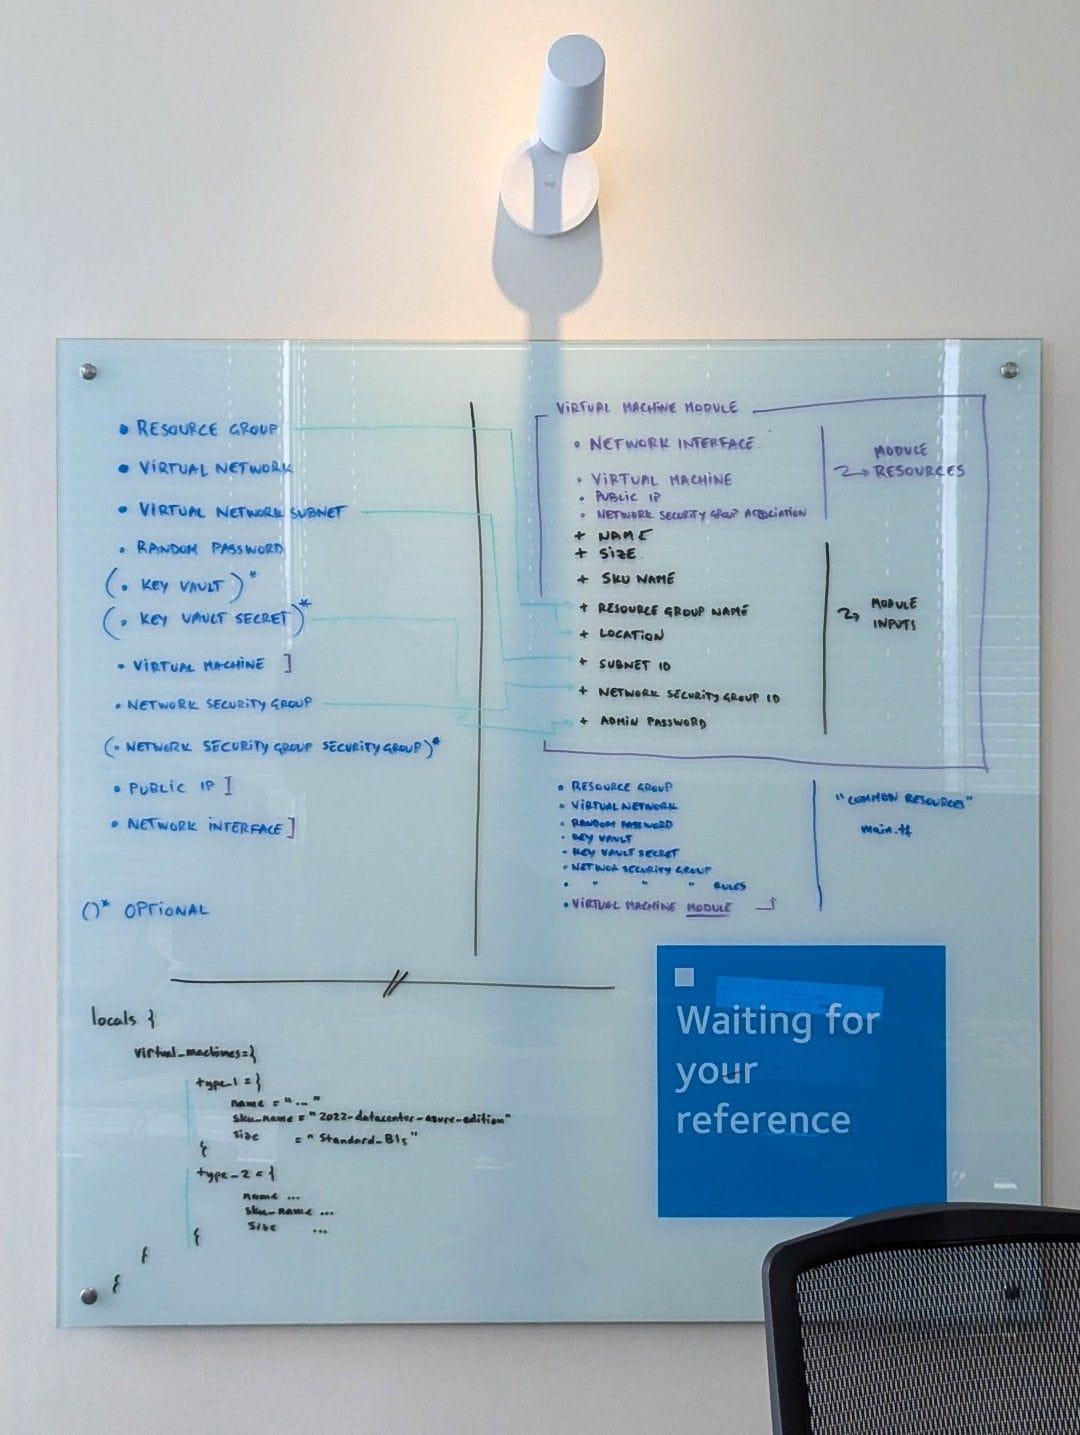 • RESOURCE GROUP
• VIRTUAL NETWORK
• VIRTUAL NETWORK SUBNET
• RANDOM PASSWORD
(• KEY VAULT)*
(• KEY VAULT SECRET)*
• VIRTUAL MACHINE ]
• NETWORK SECURITY GROUP
(• NETWORK SECURITY GROUP SECURITY GROUP)*
• PUBLIC IP ]
• NETWORK INTERFACE ]
()* OPTIONAL
VIRTUAL MACHINE MODULE
• NETWORK INTERFACE
• VIRTUAL MACHINE
• PUBLIC IP
• NETWORK SECURITY GROUP ASSOCIATION
MODULE
RESOURCES
+ NAME
+ SIZE
+ SKU NAME
+ RESOURCE GROUP NAME
+ LOCATION
+ SUBNET ID
+ NETWORK SECURITY GROUP ID
+ ADMIN PASSWORD
MODULE
INPUTS
• RESOURCE GROUP
• VIRTUAL NETWORK
• RANDOM PASSWORD
• KEY VAULT
• KEY VAULT SECRET
• NETWOK SECURITY GROUP
• " " " RULES
• VIRTUAL MACHINE MODULE
"COMMON RESOURCES"
main.tf
locals {
virtual_machines={
type_1 = {
name = "..."
sku_name = "2022-datacenter-azure-edition"
size = "Standard_B1s"
}
type_2 = {
name ...
sku_name ...
size ...
}
}
}
Waiting for
your
reference